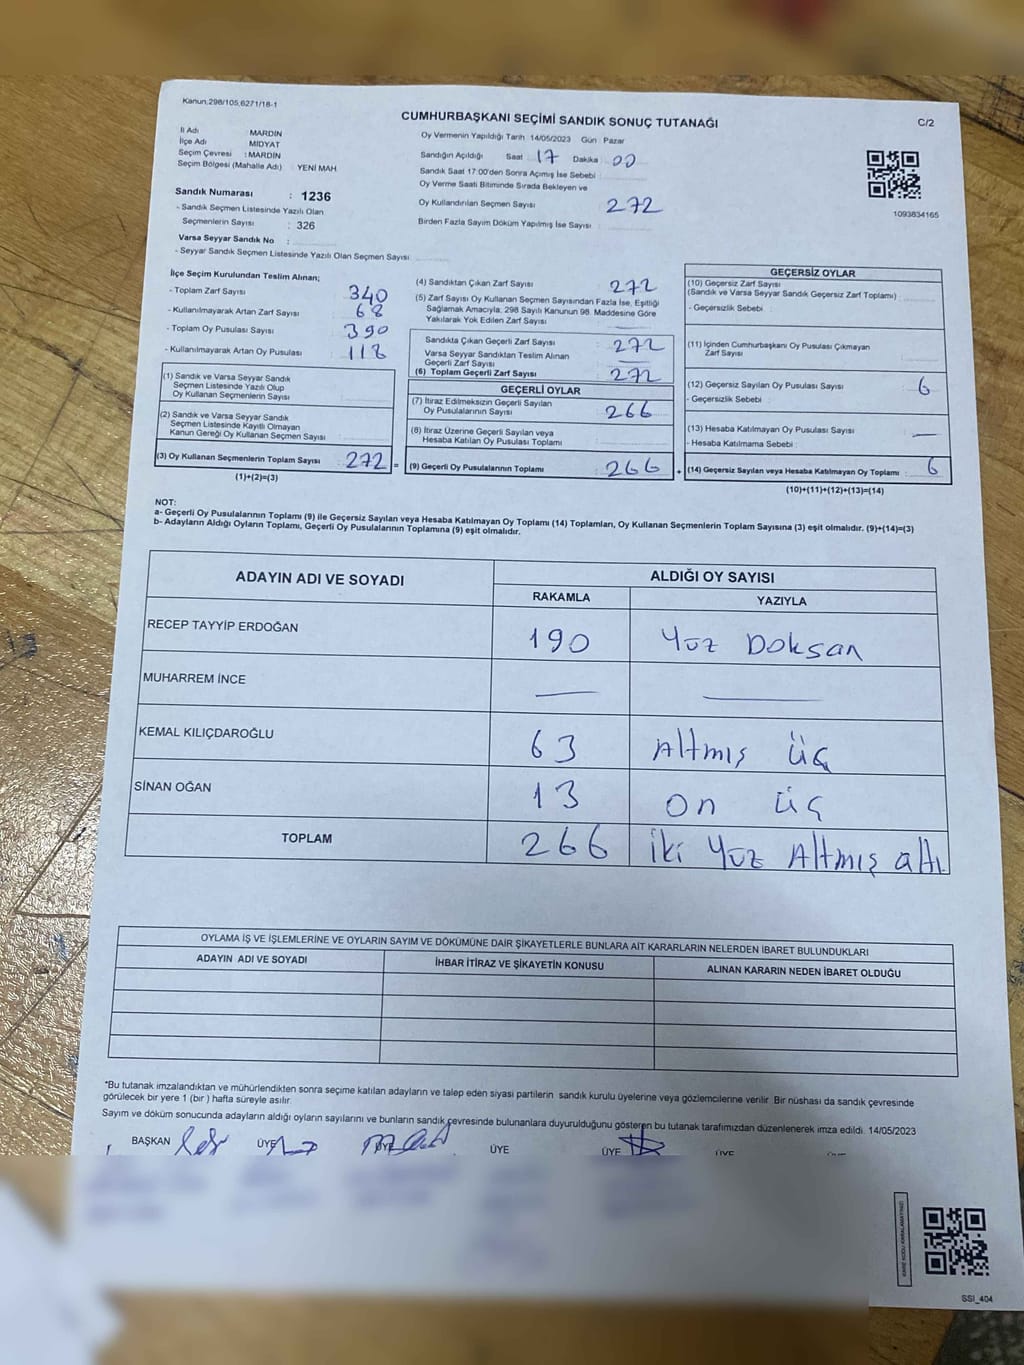 Kanun:298/105,6271/18-1
CUMHURBAŞKANI SEÇİMİ SANDIK SONUÇ TUTANAĞI
C/2
İl Adı : MARDİN
İlçe Adı MİDYAT
Seçim Çevresi : MARDİN
Seçim Bölgesi (Mahalle Adı) : YENİ MAH
Sandık Numarası : 1236
- Sandık Seçmen Listesinde Yazılı Olan
Seçmenlerin Sayısı : 326
Varsa Seyyar Sandık No :
- Seyyar Sandık Seçmen Listesinde Yazılı Olan Seçmen Sayısı
Oy Vermenin Yapıldığı Tarih :14/05/2023 Gün : Pazar
Sandığın Açıldığı Saat 17 Dakika : 00
Sandık Saat 17:00'den Sonra Açımış İse Sebebi :
Oy Verme Saati Bitiminde Sırada Bekleyen ve
Oy Kullandırılan Seçmen Sayısı 272
Birden Fazla Sayım Döküm Yapılmış İse Sayısı
1093834165
İlçe Seçim Kurulundan Teslim Alınan;
- Toplam Zarf Sayısı 340
- Kullanılmayarak Artan Zarf Sayısı 68
- Toplam Oy Pusulası Sayısı 390
- Kullanılmayarak Artan Oy Pusulası 118
(1) Sandık ve Varsa Seyyar Sandık
Seçmen Listesinde Yazılı Olup
Oy Kullanan Seçmenlerin Sayısı
(2) Sandık ve Varsa Seyyar Sandık
Seçmen Listesinde Kayıtlı Olmayan
Kanun Gereği Oy Kullanan Seçmen Sayısı
(3) Oy Kullanan Seçmenlerin Toplam Sayısı : 272 =
(1)+(2)=(3)
(4) Sandıktan Çıkan Zarf Sayısı : 272
(5) Zarf Sayısı Oy Kullanan Seçmen Sayısından Fazla İse, Eşitliği
Sağlamak Amacıyla; 298 Sayılı Kanunun 98. Maddesine Göre
Yakılarak Yok Edilen Zarf Sayısı
Sandıkta Çıkan Geçerli Zarf Sayısı : 272
Varsa Seyyar Sandıktan Teslim Alınan
Geçerli Zarf Sayısı
(6) Toplam Geçerli Zarf Sayısı : 272
GEÇERLİ OYLAR
(7) İtiraz Edilmeksizin Geçerli Sayılan
Oy Pusulalarının Sayısı : 266
(8) İtiraz Üzerine Geçerli Sayılan veya
Hesaba Katılan Oy Pusulası Toplamı
(9) Geçerli Oy Pusulalarının Toplamı : 266 +
GEÇERSİZ OYLAR
(10) Geçersiz Zarf Sayısı
(Sandık ve Varsa Seyyar Sandık Geçersiz Zarf Toplamı)
- Geçersizlik Sebebi :
(11) İçinden Cumhurbaşkanı Oy Pusulası Çıkmayan
Zarf Sayısı
(12) Geçersiz Sayılan Oy Pusulası Sayısı : 6
- Geçersizlik Sebebi :
(13) Hesaba Katılmayan Oy Pusulası Sayısı : —
- Hesaba Katılmama Sebebi :
(14) Geçersiz Sayılan veya Hesaba Katılmayan Oy Toplamı : 6
(10)+(11)+(12)+(13)=(14)
NOT:
a- Geçerli Oy Pusulalarının Toplamı (9) ile Geçersiz Sayılan veya Hesaba Katılmayan Oy Toplamı (14) Toplamları, Oy Kullanan Seçmenlerin Toplam Sayısına (3) eşit olmalıdır. (9)+(14)=(3)
b- Adayların Aldığı Oyların Toplamı, Geçerli Oy Pusulalarının Toplamına (9) eşit olmalıdır.
ADAYIN ADI VE SOYADI ALDIĞI OY SAYISI
RAKAMLA YAZIYLA
RECEP TAYYİP ERDOĞAN 190 Yüz Doksan
MUHARREM İNCE — —
KEMAL KILIÇDAROĞLU 63 Altmış üç
SİNAN OĞAN 13 on üç
TOPLAM 266 iki Yüz Altmış altı
OYLAMA İŞ VE İŞLEMLERİNE VE OYLARIN SAYIM VE DÖKÜMÜNE DAİR ŞİKAYETLERLE BUNLARA AİT KARARLARIN NELERDEN İBARET BULUNDUKLARI
ADAYIN ADI VE SOYADI İHBAR İTİRAZ VE ŞİKAYETİN KONUSU ALINAN KARARIN NEDEN İBARET OLDUĞU
*Bu tutanak imzalandıktan ve mühürlendikten sonra seçime katılan adayların ve talep eden siyasi partilerin sandık kurulu üyelerine veya gözlemcilerine verilir. Bir nüshası da sandık çevresinde
görülecek bir yere 1 (bir ) hafta süreyle asılır.
Sayım ve döküm sonucunda adayların aldığı oyların sayılarını ve bunların sandık çevresinde bulunanlara duyurulduğunu gösteren bu tutanak tarafımızdan düzenlenerek imza edildi. 14/05/2023
BAŞKAN ÜYE ÜYE ÜYE ÜYE
SSI_404